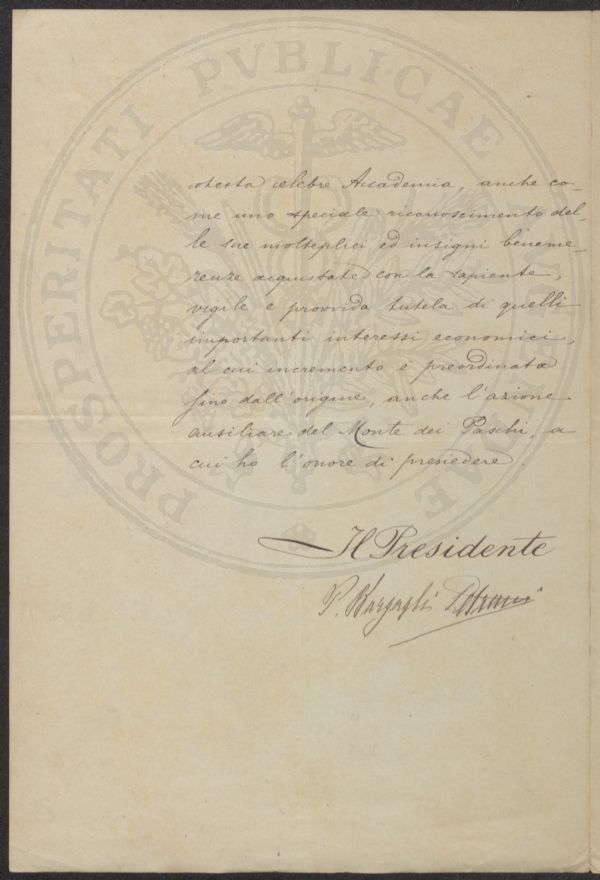 PROSPERITATI PVBLICAE AVGENDAE
cotesta celebre Accademia, anche co-
me uno speciale riconoscimento del-
le sue molteplici ed insigni beneme-
renze acquistate con la sapiente,
vigile e provvida tutela di quelli
importanti interessi economici,
al cui incremento è preordinata
fino dall'origine, anche l'azione
ausiliare del Monte dei Paschi, a
cui ho l'onore di presiedere.
Il Presidente
P. Bargagli Petrucci